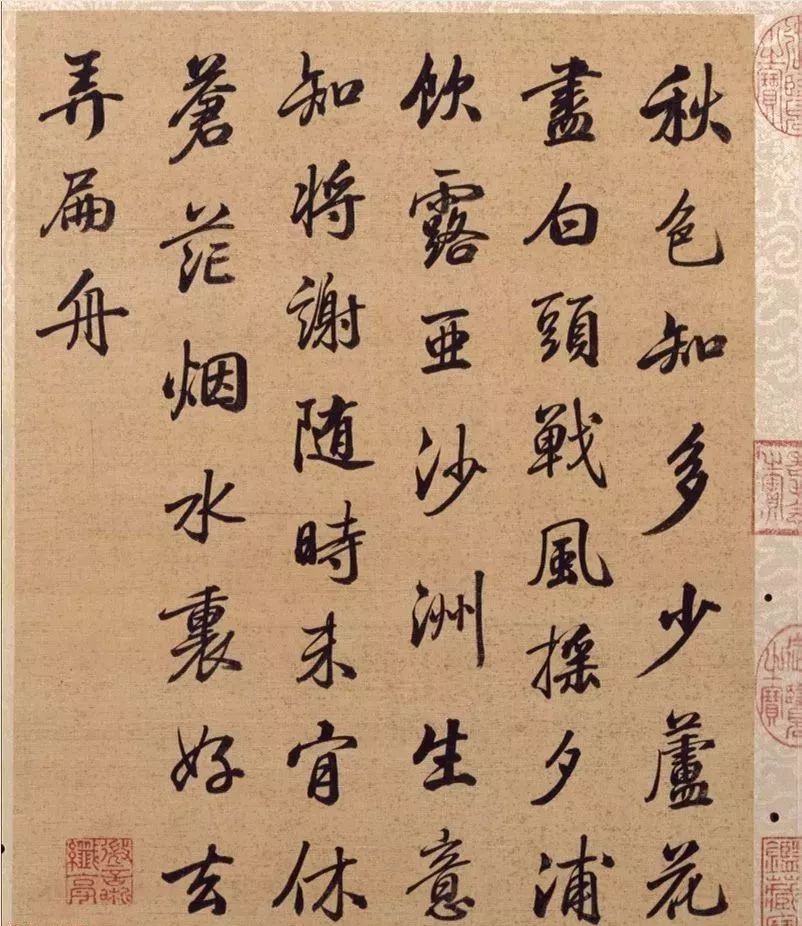 秋色知多少蘆花
盡白頭戰風搖夕浦
飲露亞沙洲生意
知将謝随時未肯休
蒼茫烟水裏好去
弄扁舟